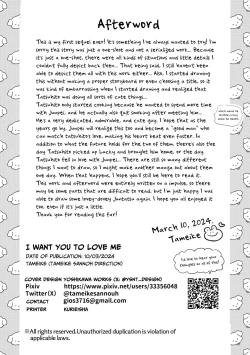 Afterword
This is my first seijuki ever! It's something I've always wanted to try! I'm
sorry this story was just a one-shot and not a serialized work... Because
it's just a one-shot, there were all kinds of situations and little details I
couldn't fully depict back then... That being said, I still haven't been
able to depict them all with this work either... Also, I started drawing
this without making a proper storyboard or even choosing a title, so it
was kind of embarrassing when I started drawing and realized that
Tatsukito was doing all sorts of cute things...
Tatsukito only started cooking because he wanted to spend more time
with Junpei, and he actually also quit smoking after meeting him...
He's a very dedicated, admirable, and cute guy. I hope that as the
years go by, Junpei will realize this too and become a "good man" who
can match Tatsukito's love, making his heart beat even faster. In
addition to what the future holds for the two of them, there's also the
day Tatsukito picked up Lucky and brought him home, or the day
Tatsukito fell in love with Junpei... There are still so many different
things I want to draw, so I might make another manga out about them
one day. When that happens, I hope you'll still be here to read it.
This work and afterword were entirely written on a impulse, so there
may be some parts that are difficult to read, but I'm just happy I was
able to draw some lovey-dovey fantasies again. I hope you all enjoyed it
too, even if it's just a little.
Thank you for reading this far!
March 10, 2024.
Tameike
I'd love to hear your
thoughts on all of this!
I WANT YOU TO LOVE ME
DATE OF PUBLICATION: 10/03/2024
TAMEIKE (TAMEIKE SANNOH DIRECTION)
COVER DESIGN YOSHIKAWA WORKS (X: @YSNT_DESIGN)
Pixiv https://www.pixiv.net/users/33356048
Twitter(X) @tameikesannouh
CONTACT gios3716@gmail.com
PRINTER KURIEISHA
※All rights reserved. Unauthorized duplication is violation of
applicable laws.